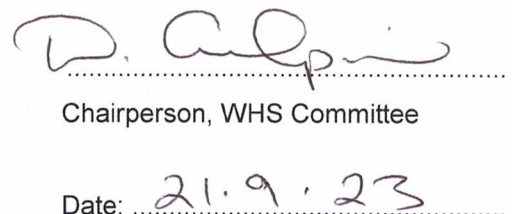 D.
Chairperson, WHS Committee
Date: 21.9.23